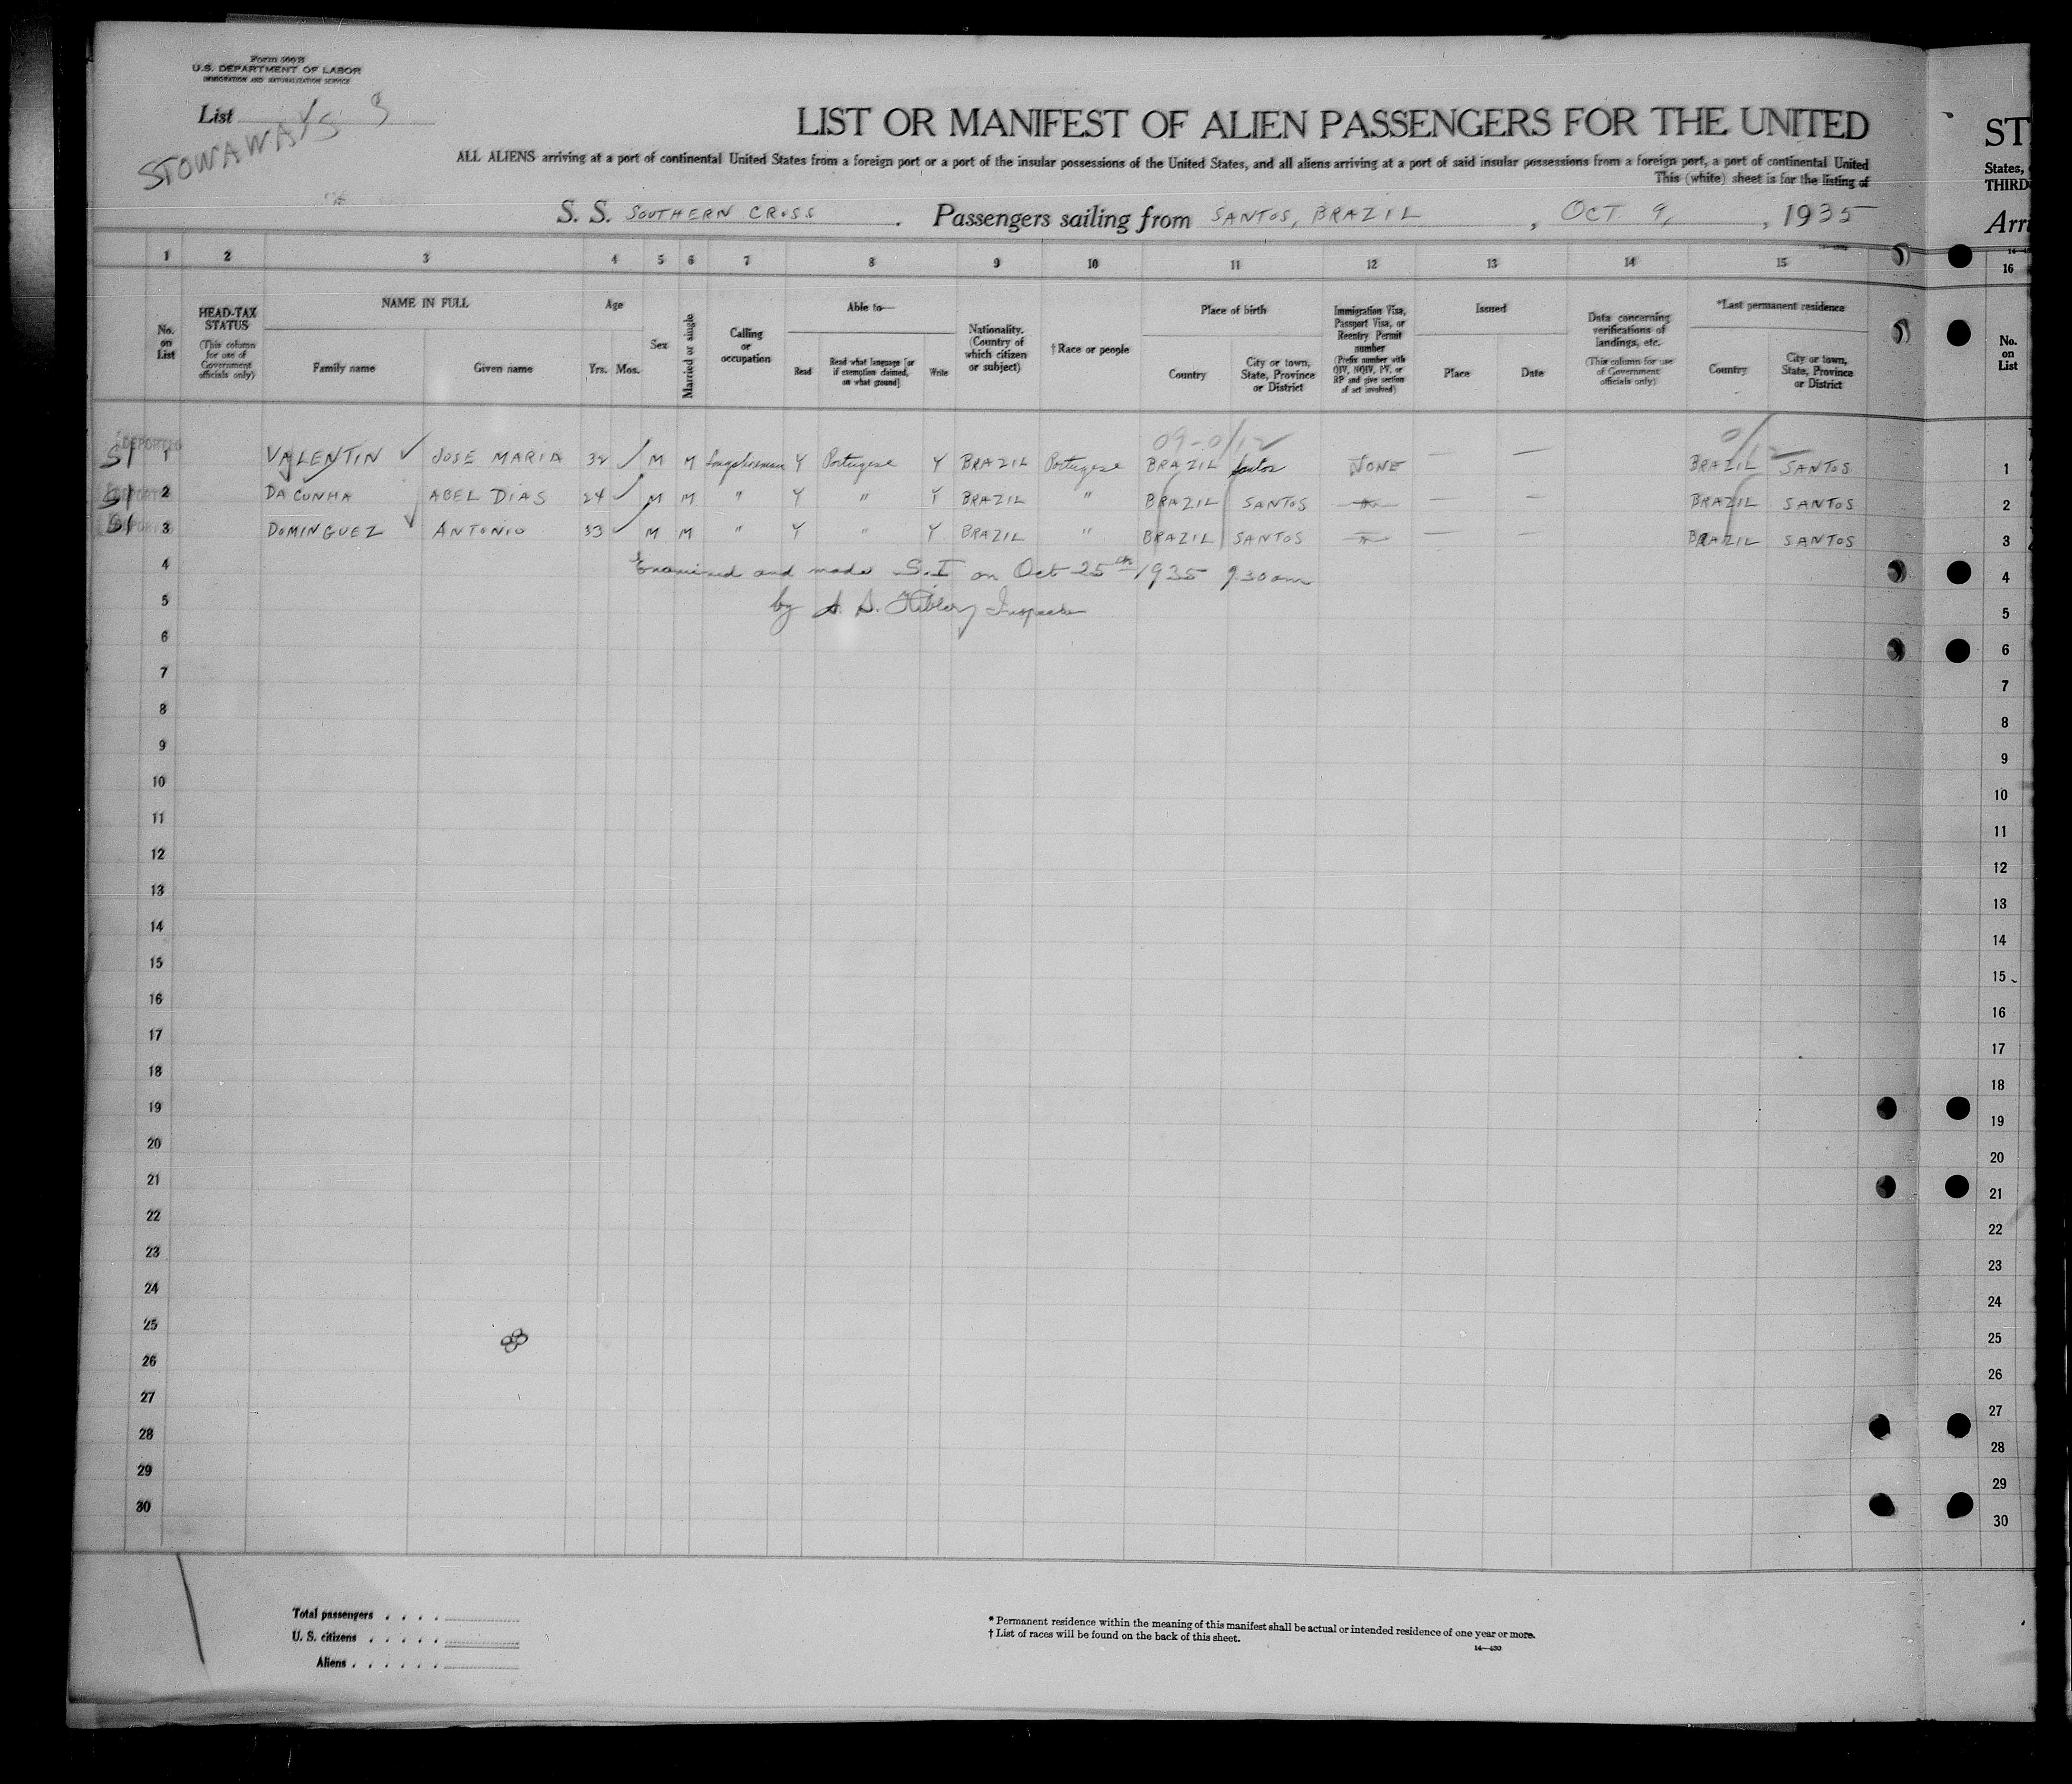 Form 500 B
U.S. DEPARTMENT OF LABOR
IMMIGRATION AND NATURALIZATION SERVICE
List
STOWAWAYS 3
LIST OR MANIFEST OF ALIEN PASSENGERS FOR THE UNITED
ST
ALL ALIENS arriving at a port of continental United States from a foreign port or a port of the insular possessions of the United States, and all aliens arriving at a port of said insular possessions from a foreign port, a port of continental United
States,
This (white) sheet is for the listing of
THIRD
S. S. SOUTHERN CROSS . Passengers sailing from SANTOS, BRAZIL , OCT 9, , 1935
Arri
1 2 3 4 5 6 7 8 9 10 11 12 13 14 15 16
No. on List
HEAD-TAX STATUS
(This column for use of Government officials only)
NAME IN FULL
Family name Given name
Age
Yrs. Mos.
Sex
Married or single
Calling or occupation
Able to—
Read
Read what language [or if exemption claimed, on what ground]
Write
Nationality. (Country of which citizen or subject)
†Race or people
Place of birth
Country
City or town, State, Province or District
Immigration Visa, Passport Visa, or Reentry Permit number
(Prefix number with QIV, NQIV, PV, or RP and give section of act involved)
Issued
Place Date
Data concerning verifications of landings, etc.
(This column for use of Government officials only)
*Last permanent residence
Country
City or town, State, Province or District
No. on List
DEPORTED
SI 1 VALENTIN JOSE MARIA 32 M M Longshoreman Y Portugese Y BRAZIL Portugese BRAZIL Santos NONE — — BRAZIL SANTOS 1
SI 2 DA CUNHA ABEL DIAS 24 M M " Y " Y BRAZIL " BRAZIL SANTOS — — BRAZIL SANTOS 2
SI 3 DOMINGUEZ ANTONIO 33 M M " Y " Y BRAZIL " BRAZIL SANTOS — — BRAZIL SANTOS 3
4 Examined and made S.I on Oct 25th 1935 9.30 am 4
5 by Inspector 5
6 6
7 7
8 8
9 9
10 10
11 11
12 12
13 13
14 14
15 15
16 16
17 17
18 18
19 19
20 20
21 21
22 22
23 23
24 24
25 25
26 26
27 27
28 28
29 29
30 30
Total passengers . . . .
U. S. citizens . . . . .
Aliens . . . . . .
* Permanent residence within the meaning of this manifest shall be actual or intended residence of one year or more.
† List of races will be found on the back of this sheet.
14—430